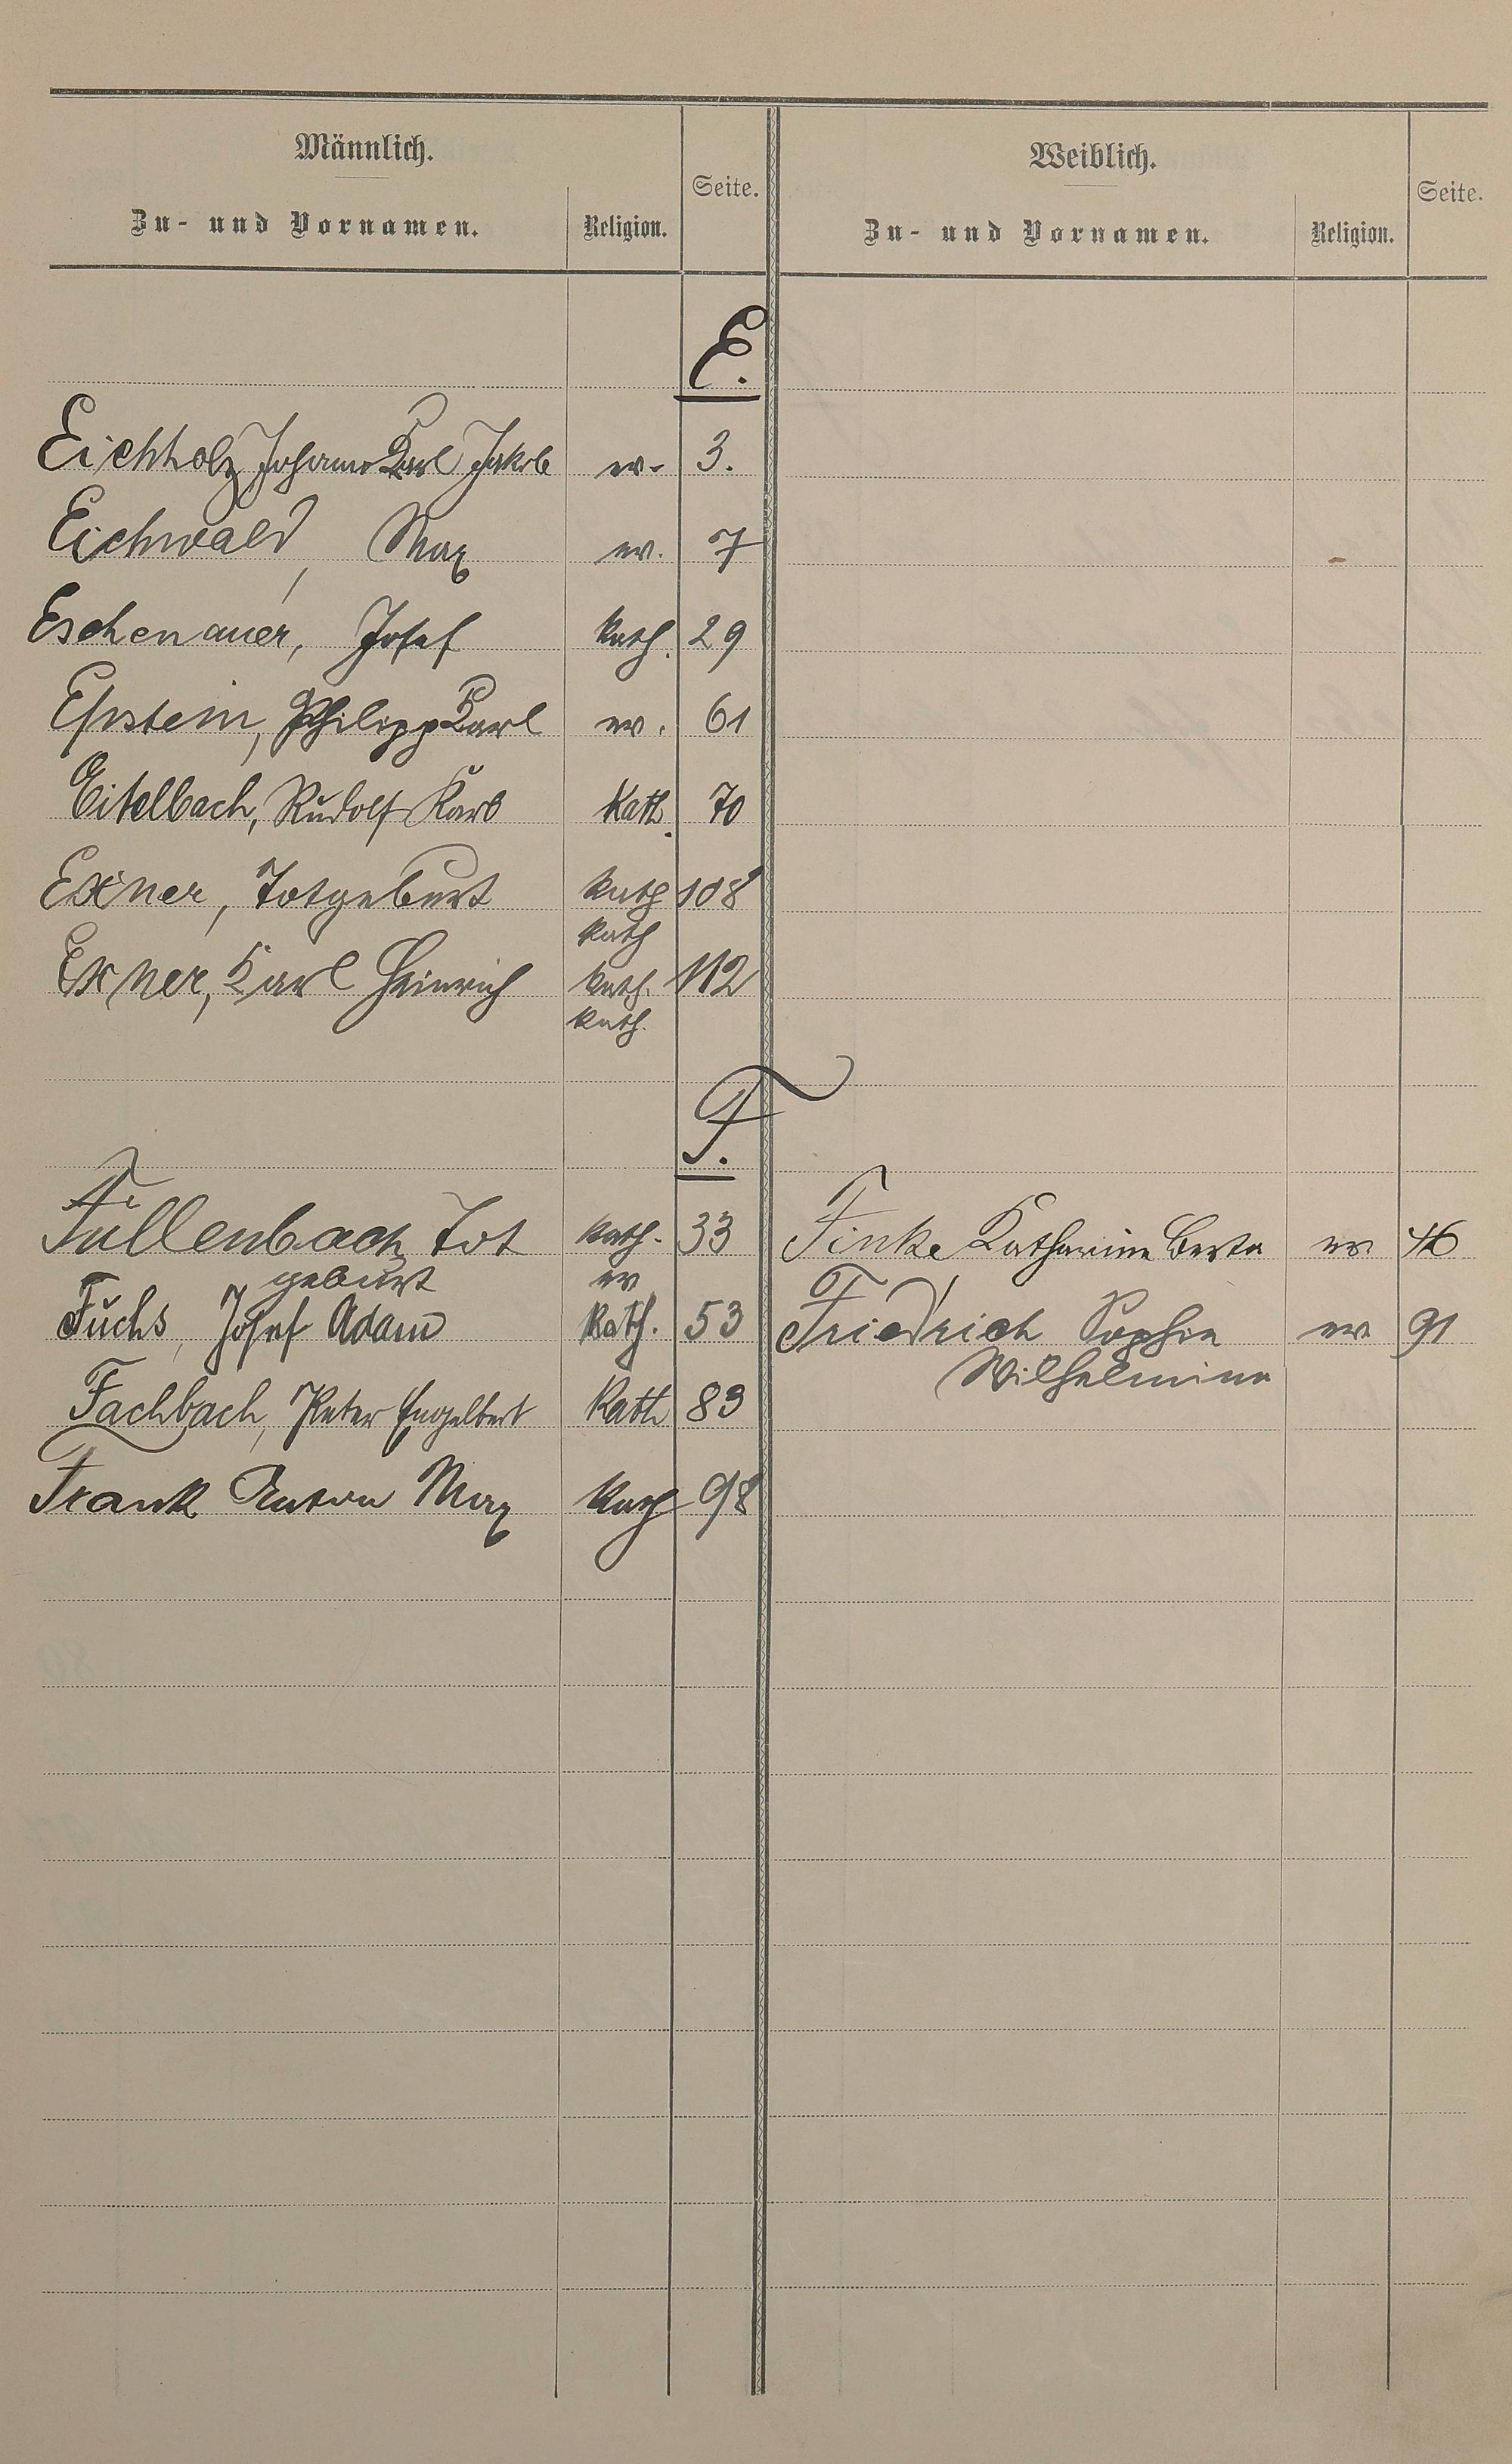 Männlich.
Zu- und Vornamen.
Religion.
Seite.
Weiblich.
Zu- und Vornamen.
Religion.
Seite.
E.
Eichholz Johann Karl Jakob ev. 3.
Eichwald, Max ev. 7
Eschenauer, Josef kath. 29
Epstein, Philipp Karl ev. 61
Eitelbach, Rudolf Karl Kath. 70
Exner, Totgeburt kath 108
kath
Exner, Karl Heinrich kath. 112
kath.
F.
Füllenbach Tot kath. 33 Finke Katharina Berta ev.
geburt ev
Fuchs, Josef Adam Kath. 53 Friedrich Sophie ev 91
Wilhelmine
Fachbach, Peter Engelbert Kath 83
Frank Anton Max Kath 98